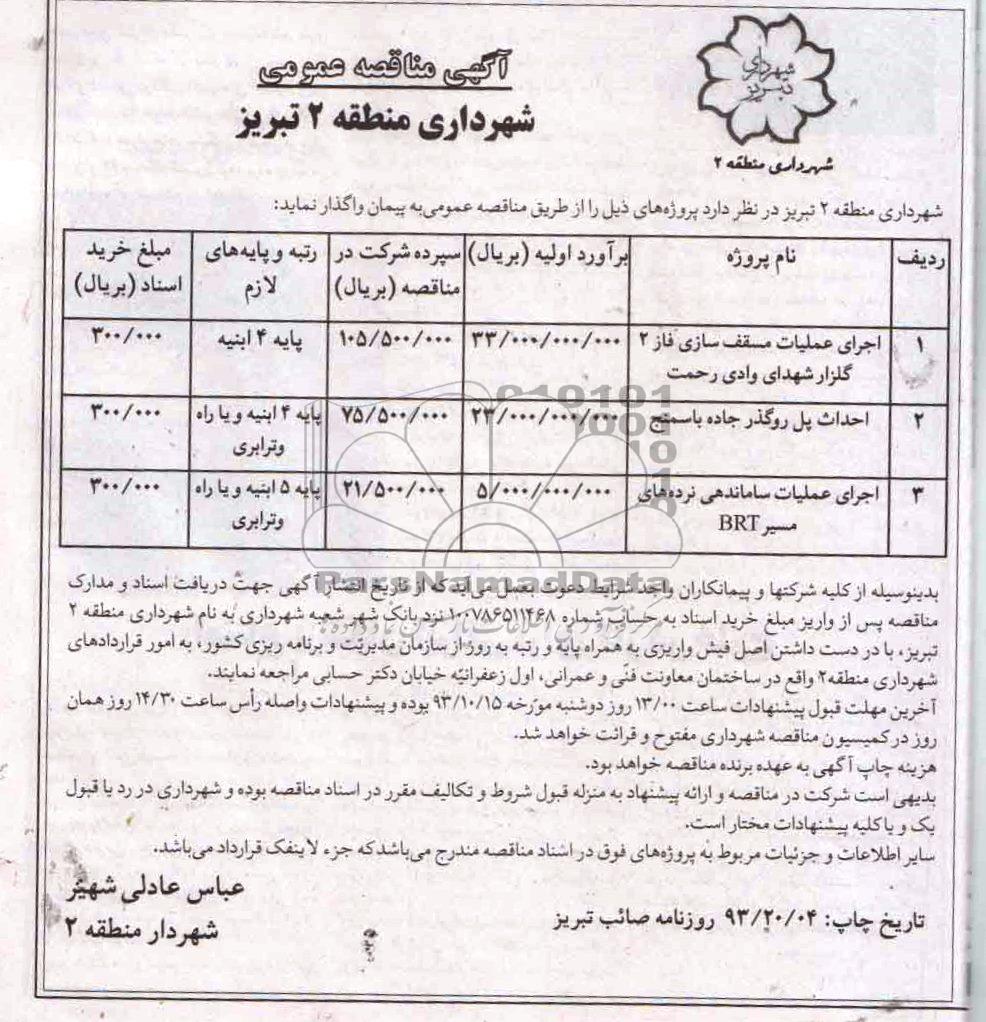 شهرداری تبریز
شهرداری منطقه ۲
آگهی مناقصه عمومی
شهرداری منطقه ۲ تبریز
شهرداری منطقه ۲ تبریز در نظر دارد پروژه‌های ذیل را از طریق مناقصه عمومی‌به پیمان واگذار نماید:
ردیف نام پروژه برآورد اولیه (بریال) سپرده شرکت در مناقصه (بریال) رتبه و پایه‌های لازم مبلغ خرید اسناد (بریال)
۱ اجرای عملیات مسقف سازی فاز ۲ گلزار شهدای وادی رحمت ۳۳/۰۰۰/۰۰۰/۰۰۰ ۱۰۵/۵۰۰/۰۰۰ پایه ۴ ابنیه ۳۰۰/۰۰۰
۲ احداث پل روگذر جاده باسمنج ۲۳/۰۰۰/۰۰۰/۰۰۰ ۷۵/۵۰۰/۰۰۰ پایه ۴ ابنیه و یا راه وترابری ۳۰۰/۰۰۰
۳ اجرای عملیات ساماندهی نرده‌های مسیر BRT ۵/۰۰۰/۰۰۰/۰۰۰ ۲۱/۵۰۰/۰۰۰ پایه ۵ ابنیه و یا راه وترابری ۳۰۰/۰۰۰
ParsNamadData
بدینوسیله از کلیه شرکتها و پیمانکاران واجد شرایط دعوت بعمل می‌آید که از تاریخ انتشار آگهی جهت دریافت اسناد و مدارک
مناقصه پس از واریز مبلغ خرید اسناد به حساب شماره ۱۰۰۷۸۶۵۱۱۴۶۸ نزد بانک شهر شعبه شهرداری به نام شهرداری منطقه ۲
تبریز، با در دست داشتن اصل فیش واریزی به همراه پایه و رتبه به روز از سازمان مدیریت و برنامه ریزی کشور، به امور قراردادهای
شهرداری منطقه۲ واقع در ساختمان معاونت فنّی و عمرانی، اول زعفرانیّه خیابان دکتر حسابی مراجعه نمایند.
آخرین مهلت قبول پیشنهادات ساعت ۱۳/۰۰ روز دوشنبه مورّخه ۹۳/۱۰/۱۵ بوده و پیشنهادات واصله رأس ساعت ۱۴/۳۰ روز همان
روز در کمیسیون مناقصه شهرداری مفتوح و قرائت خواهد شد.
هزینه چاپ آگهی به عهده برنده مناقصه خواهد بود.
بدیهی است شرکت در مناقصه و ارائه پیشنهاد به منزله قبول شروط و تکالیف مقرر در اسناد مناقصه بوده و شهرداری در رد یا قبول
یک و یا کلیه پیشنهادات مختار است.
سایر اطلاعات و جزئیات مربوط به پروژه‌های فوق در اسناد مناقصه مندرج می‌باشد که جزء لاینفک قرارداد می‌باشد.
عباس عادلی شهیر
شهردار منطقه ۲
تاریخ چاپ: ۹۳/۲۰/۰۴ روزنامه صائب تبریز